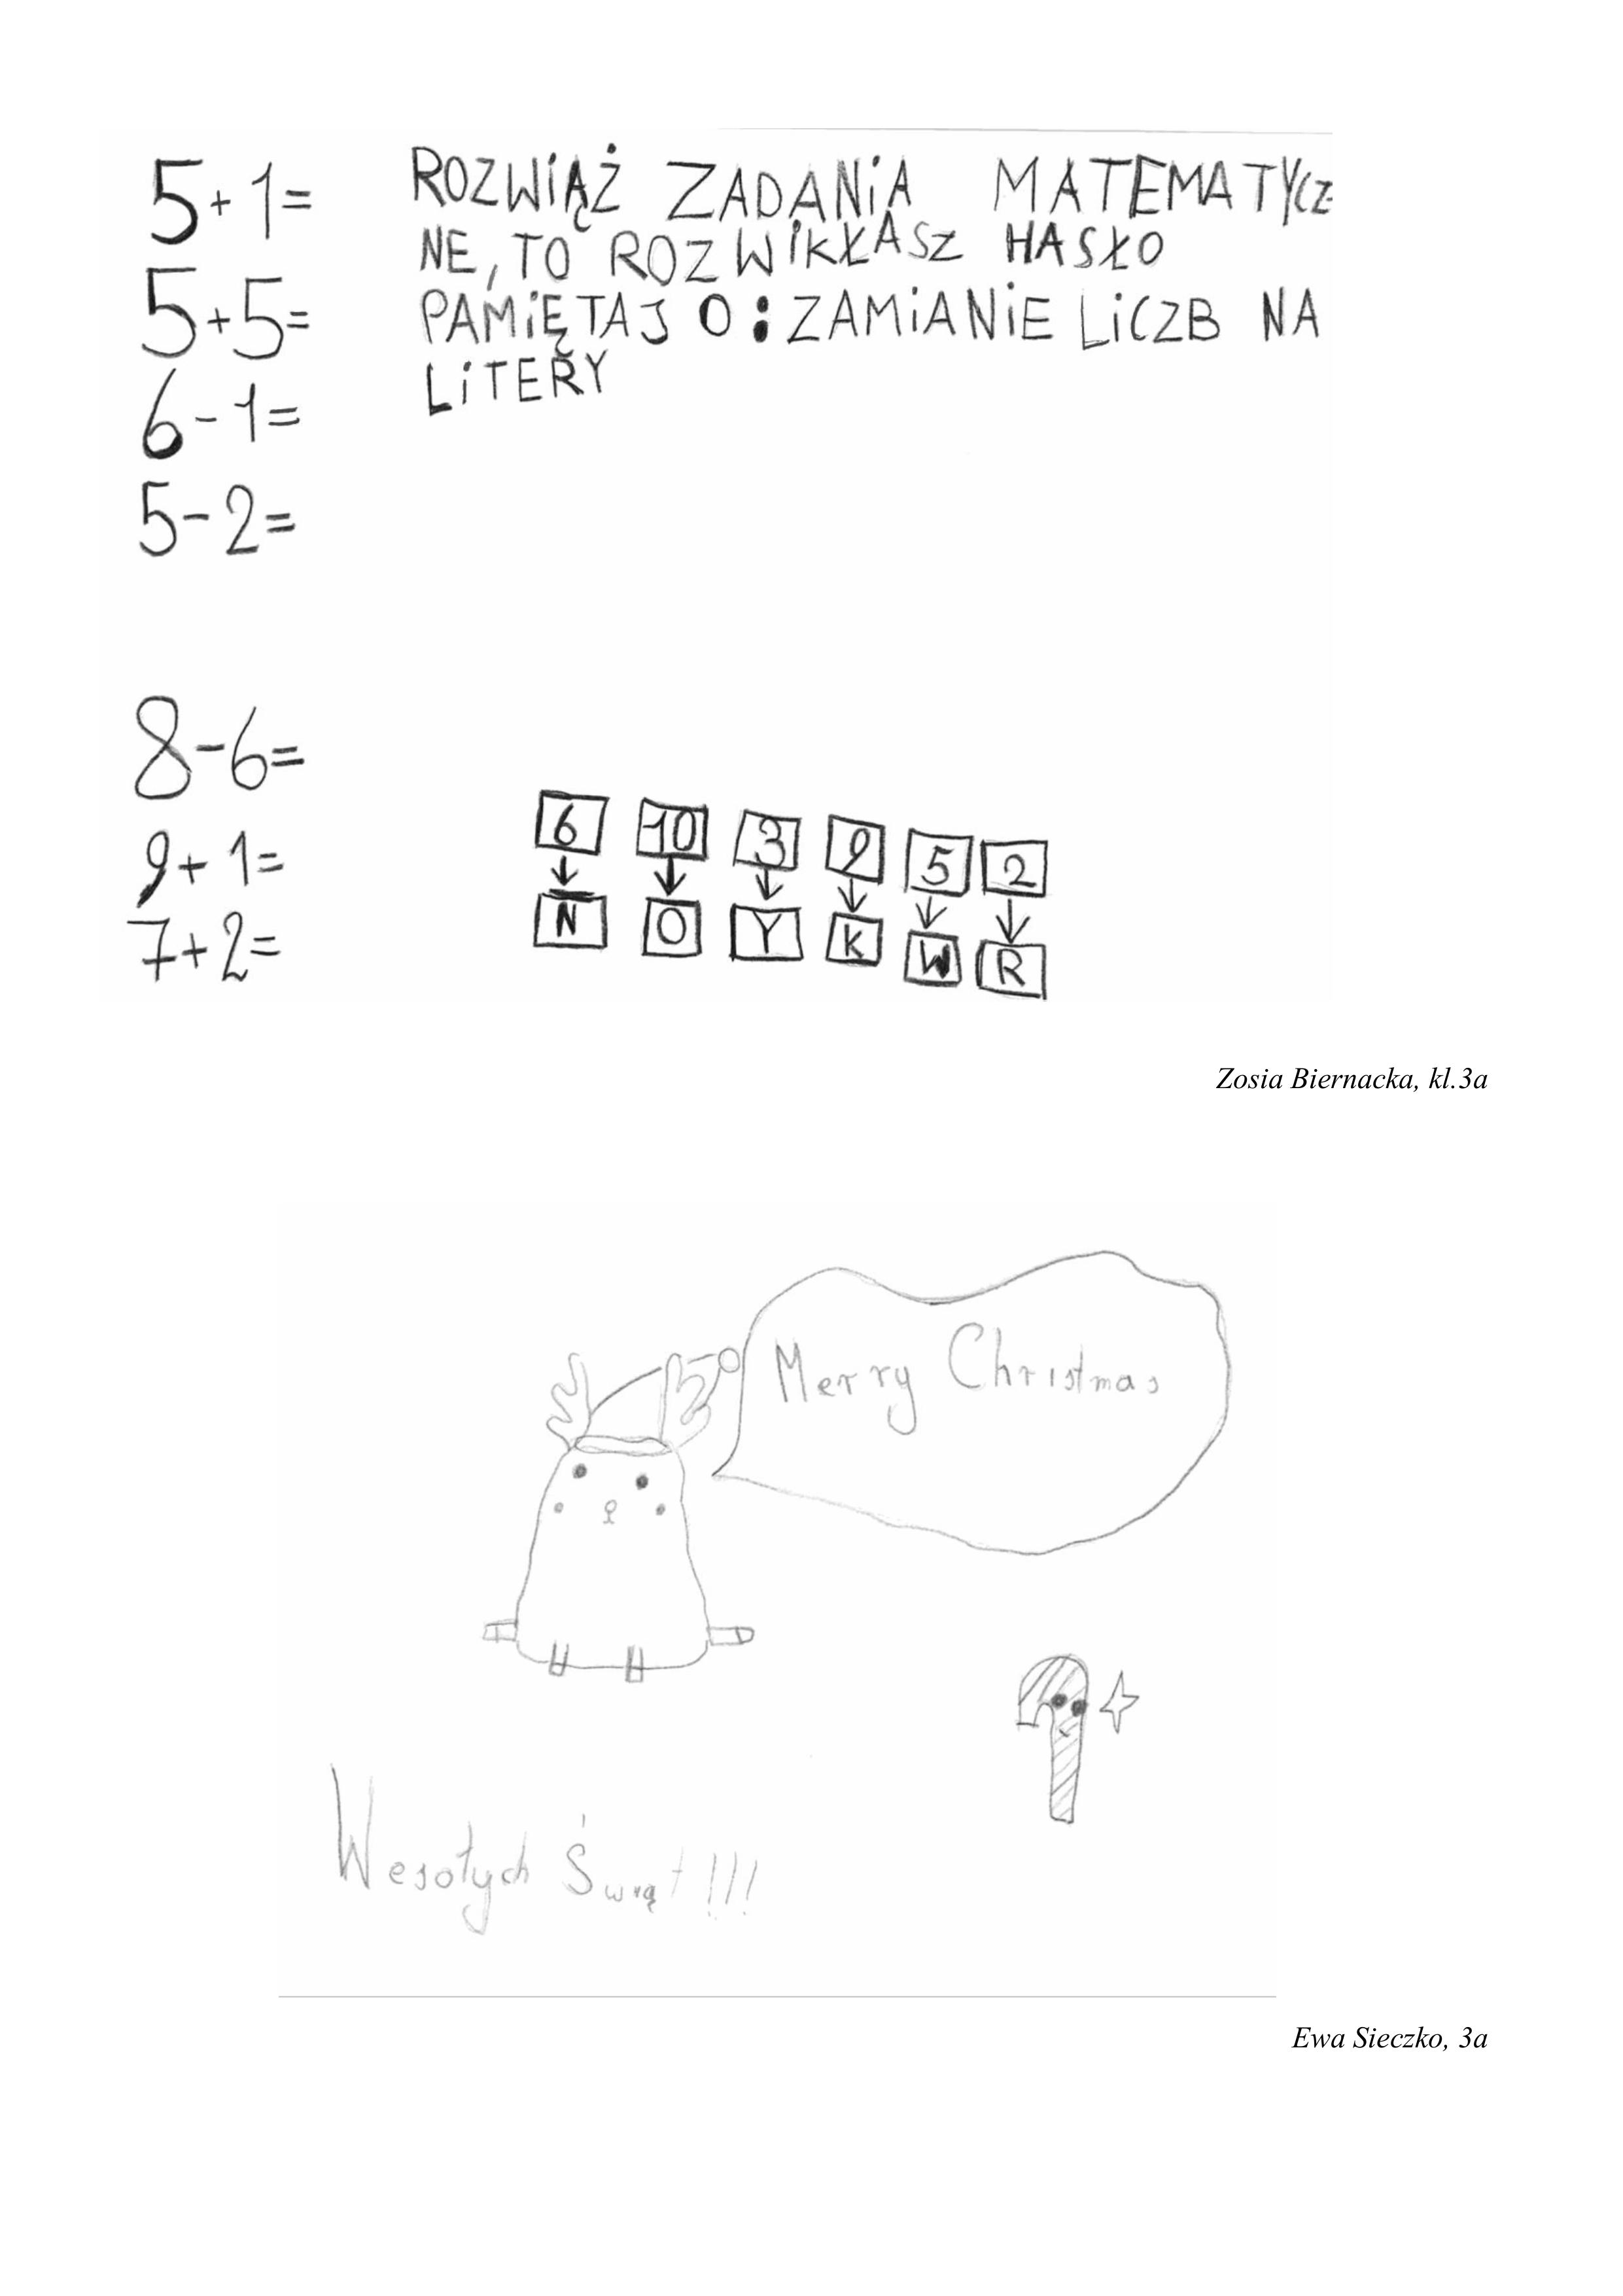 5+1=
5+5=
6-1=
5-2=
8-6=
9+1=
7+2=
ROZWIĄŻ ZADANIA MATEMATYCZ-
NE, TO ROZWIKŁASZ HASŁO
PAMIĘTAJ O: ZAMIANIE LICZB NA
LITERY
6 10 3 9 5 2
N O Y K W R
Zosia Biernacka, kl.3a
Merry Christmas
Wesołych Świąt!!!
Ewa Sieczko, 3a